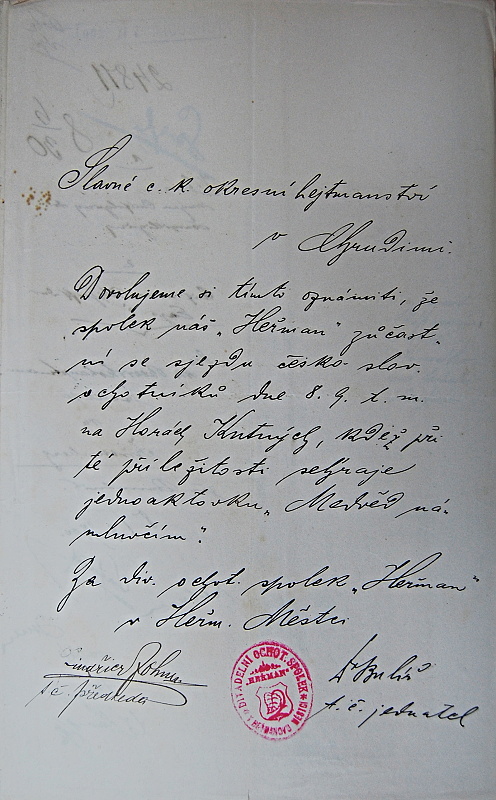 24811
Slavné c. k. okresní hejtmanství
v Chrudimi.
Dovolujeme si tímto oznámiti, že
spolek náš „Heřman" zúčast-
ní se sjezdu česko-slov.
ochotníků dne 8. 9. t. m.
na Horách Kutných, kdež při
té příležitosti sehraje
jednoaktovku „Medvěd ná-
mluvčím".
Za div. ochot. spolek „Heřman"
v Heřm. Městci
Jindřich
t. č. předseda
DIVADELNÍ OCHOT. SPOLEK
„HEŘMAN"
V HEŘMANOVĚ MĚSTCI
t. č. jednatel